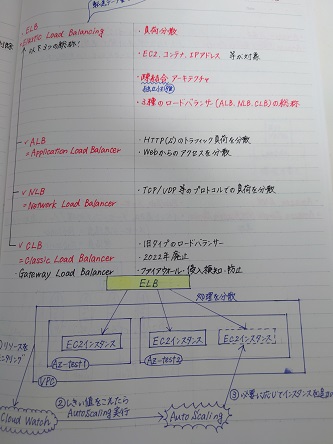 ELB
= Elastic Load Balancing
・負荷分散
・EC2、コンテナ、IPアドレス 等が対象
・疎結合アーキテクチャ
・3種のロードバランサ(ALB、NLB、CLB)の総称
✓ ALB
= Application Load Balancer
・HTTP(S)のトラフィック負荷を分散
・Webからのアクセスを分散
✓ NLB
= Natwork Load Balancer
・TCP/UDP等のプロトコルでの負荷を分散
✓ CLB
= Classic Load Balancer
・旧タイプのロードバランサー
・2022年廃止
・Gateway Load Balancer
・ファイアウォール・侵入検知・防止
ELB
処理を分散
EC2インスタンス
EC2インスタンス
EC2インスタンス
Az-test1
Az-test2
VPC
①リソースを
②しきい値をこえたら
AutoScaling 実行
③必要に応じてインスタンスを
Cloud Watch
Auto Scaling